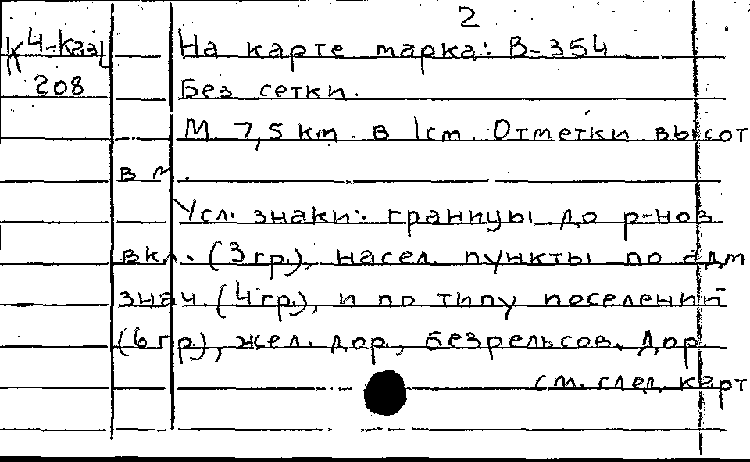 2
К4-Каз
208
На карте марка: В-354
Без сетки.
М. 7,5 km. в 1cm. Отметки высот
в м.
Усл. знаки: границы до р-нов
вкл. (3 гр.), насел. пункты по адм
знач. (4 гр.), и по типу поселений
(6 гр.), жел. дор., безрельсов. дор.
см. след. карт